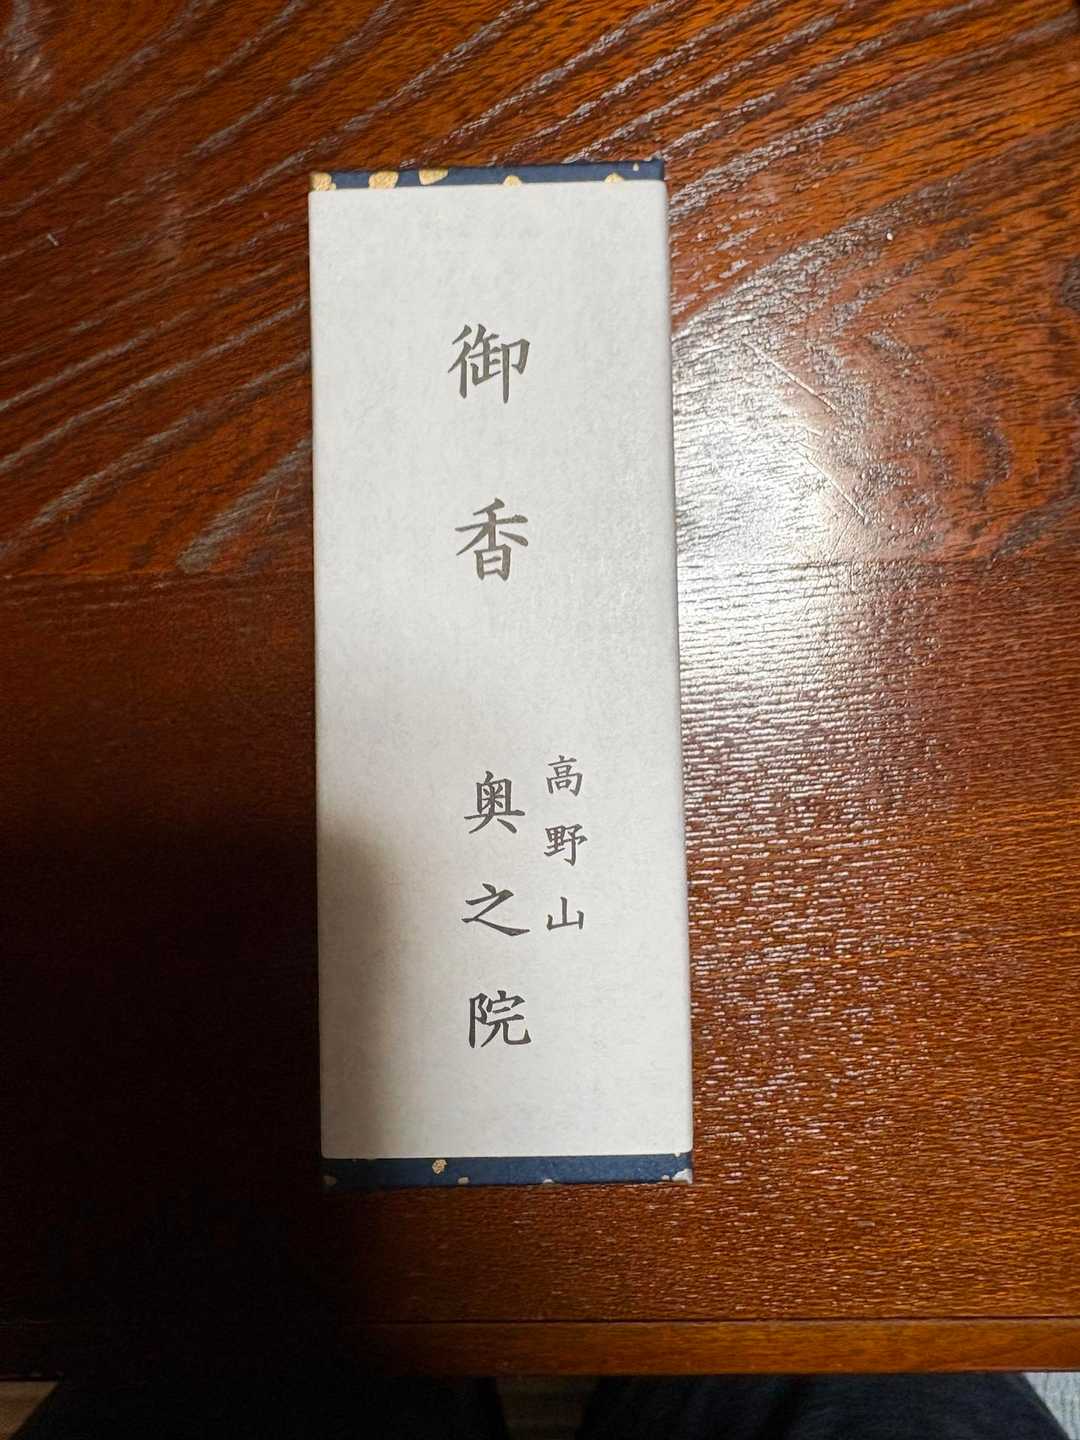 御香
高野山
奥之院